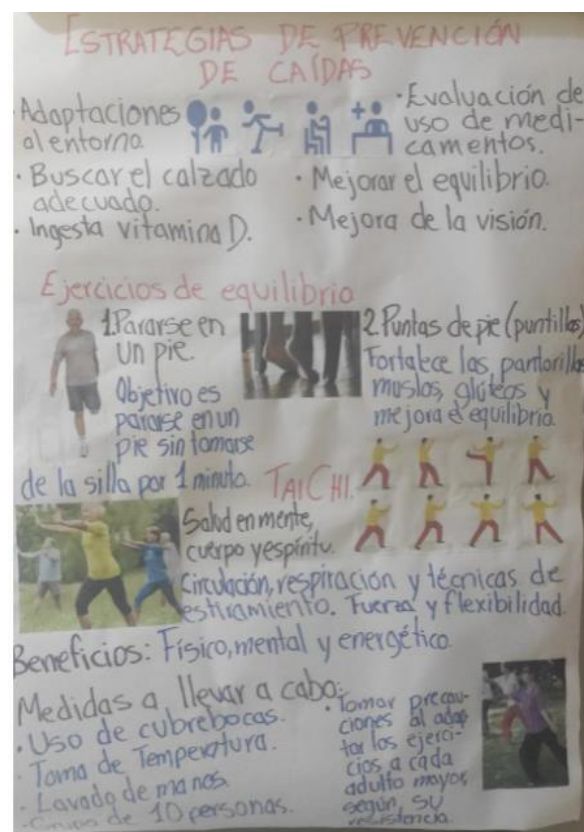 ESTRATEGIAS DE PREVENCIÓN
DE CAÍDAS
· Adaptaciones
al entorno.
· Buscar el calzado
adecuado.
· Ingesta vitamina D.
· Evaluación de
uso de medi-
camentos.
· Mejorar el equilibrio.
· Mejora de la visión.
Ejercicios de equilibrio
1. Pararse en
un pie.
Objetivo es
pararse en un
pie sin tomarse
de la silla por 1 minuto.
2. Puntas de pie (puntillas)
Fortalece las pantorrillas
muslos, glúteos y
mejora el equilibrio.
TAI CHI.
Salud en mente,
cuerpo y espíritu.
Circulación, respiración y técnicas de
estiramiento. Fuerza y flexibilidad.
Beneficios: Físico, mental y energético.
Medidas a llevar a cabo:
· Uso de cubrebocas.
· Toma de Temperatura.
· Lavado de manos.
· Grupo de 10 personas.
· Tomar precau-
ciones al adap
tar los ejerci-
cios a cada
adulto mayor,
según, su
resistencia.